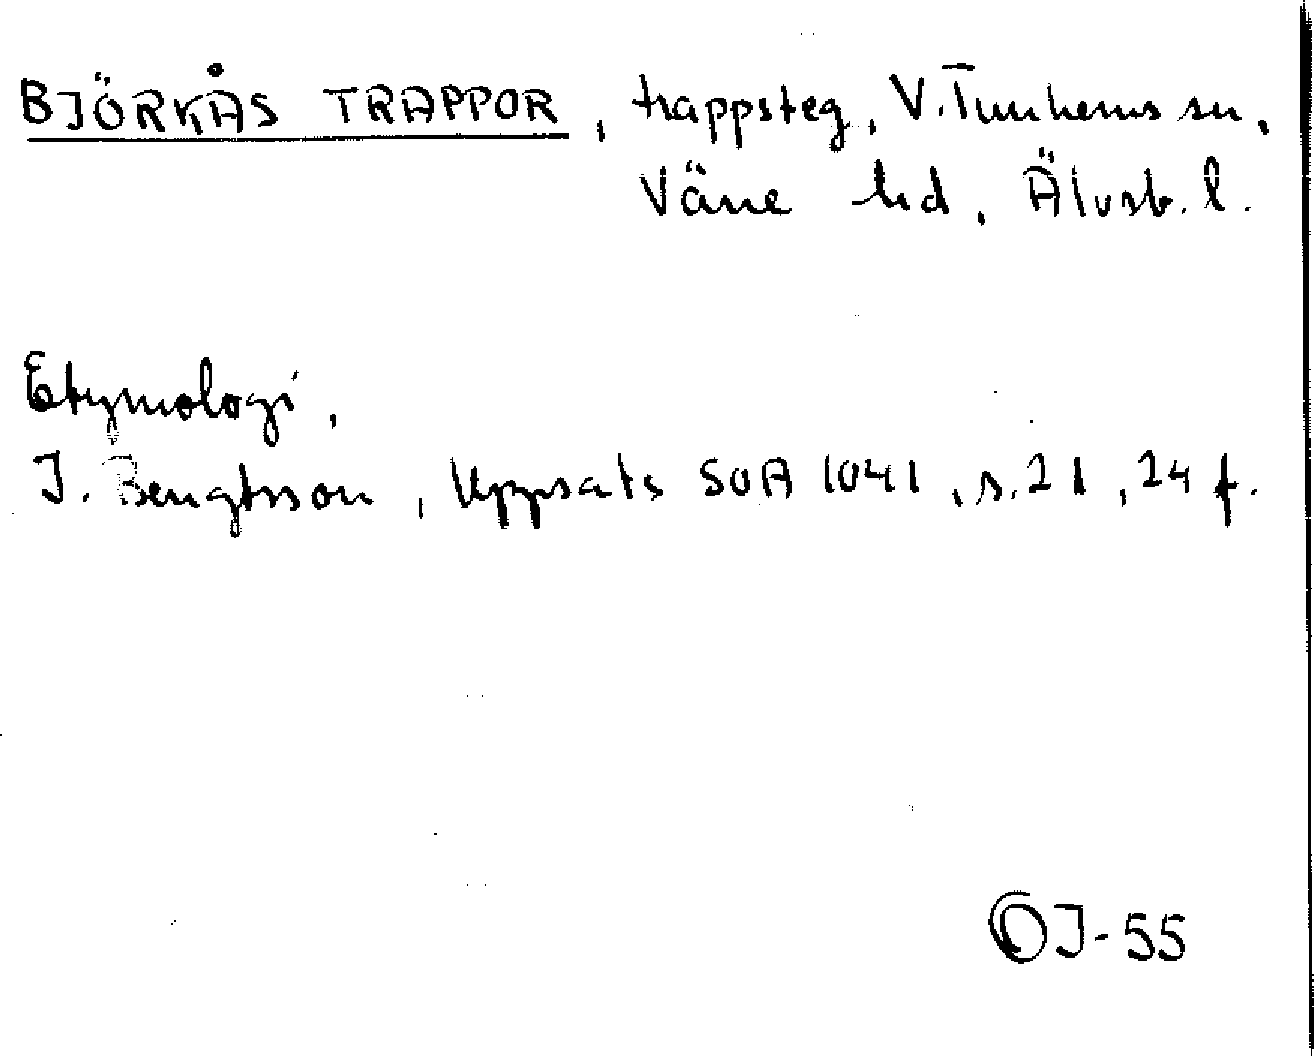 BJÖRKÅS TRAPPOR, trappsteg, V. Tunhems sn,
Väne hd, Älvsb. l.
Etymologi,
I. Bengtsson, Uppsats SOA 1041, s. 21, 24 f.
OJ-55